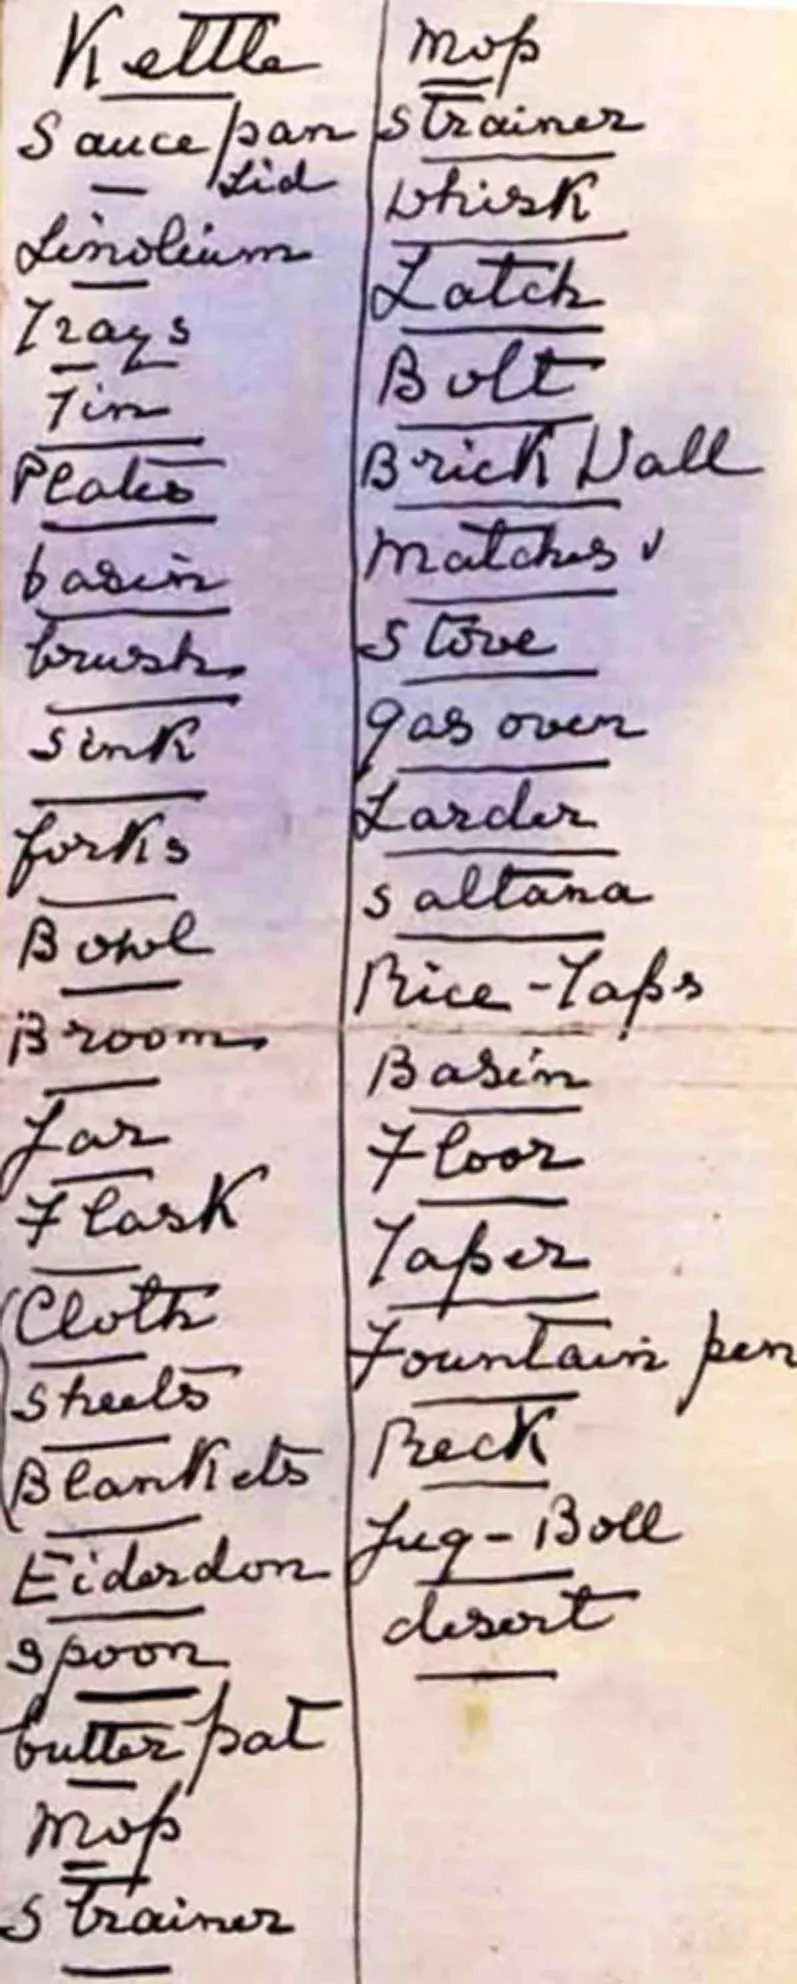 Kettle
Sauce/pan
Lid
Linolium
Trays
Tin
Plates
basin
brush
sink
forks
Bowl
Broom
Jar
Flask
Cloth
Sheets
Blankets
Eiderdon
spoon
butter pat
Mop
Strainer
Mop
Strainer
Whisk
Latch
Bolt
Brick Wall
Matches ✓
Stove
gas oven
Larder
saltana
Rice - Taps
Basin
Floor
Taper
Fountain pen
Reck
Jug - Boll
desert